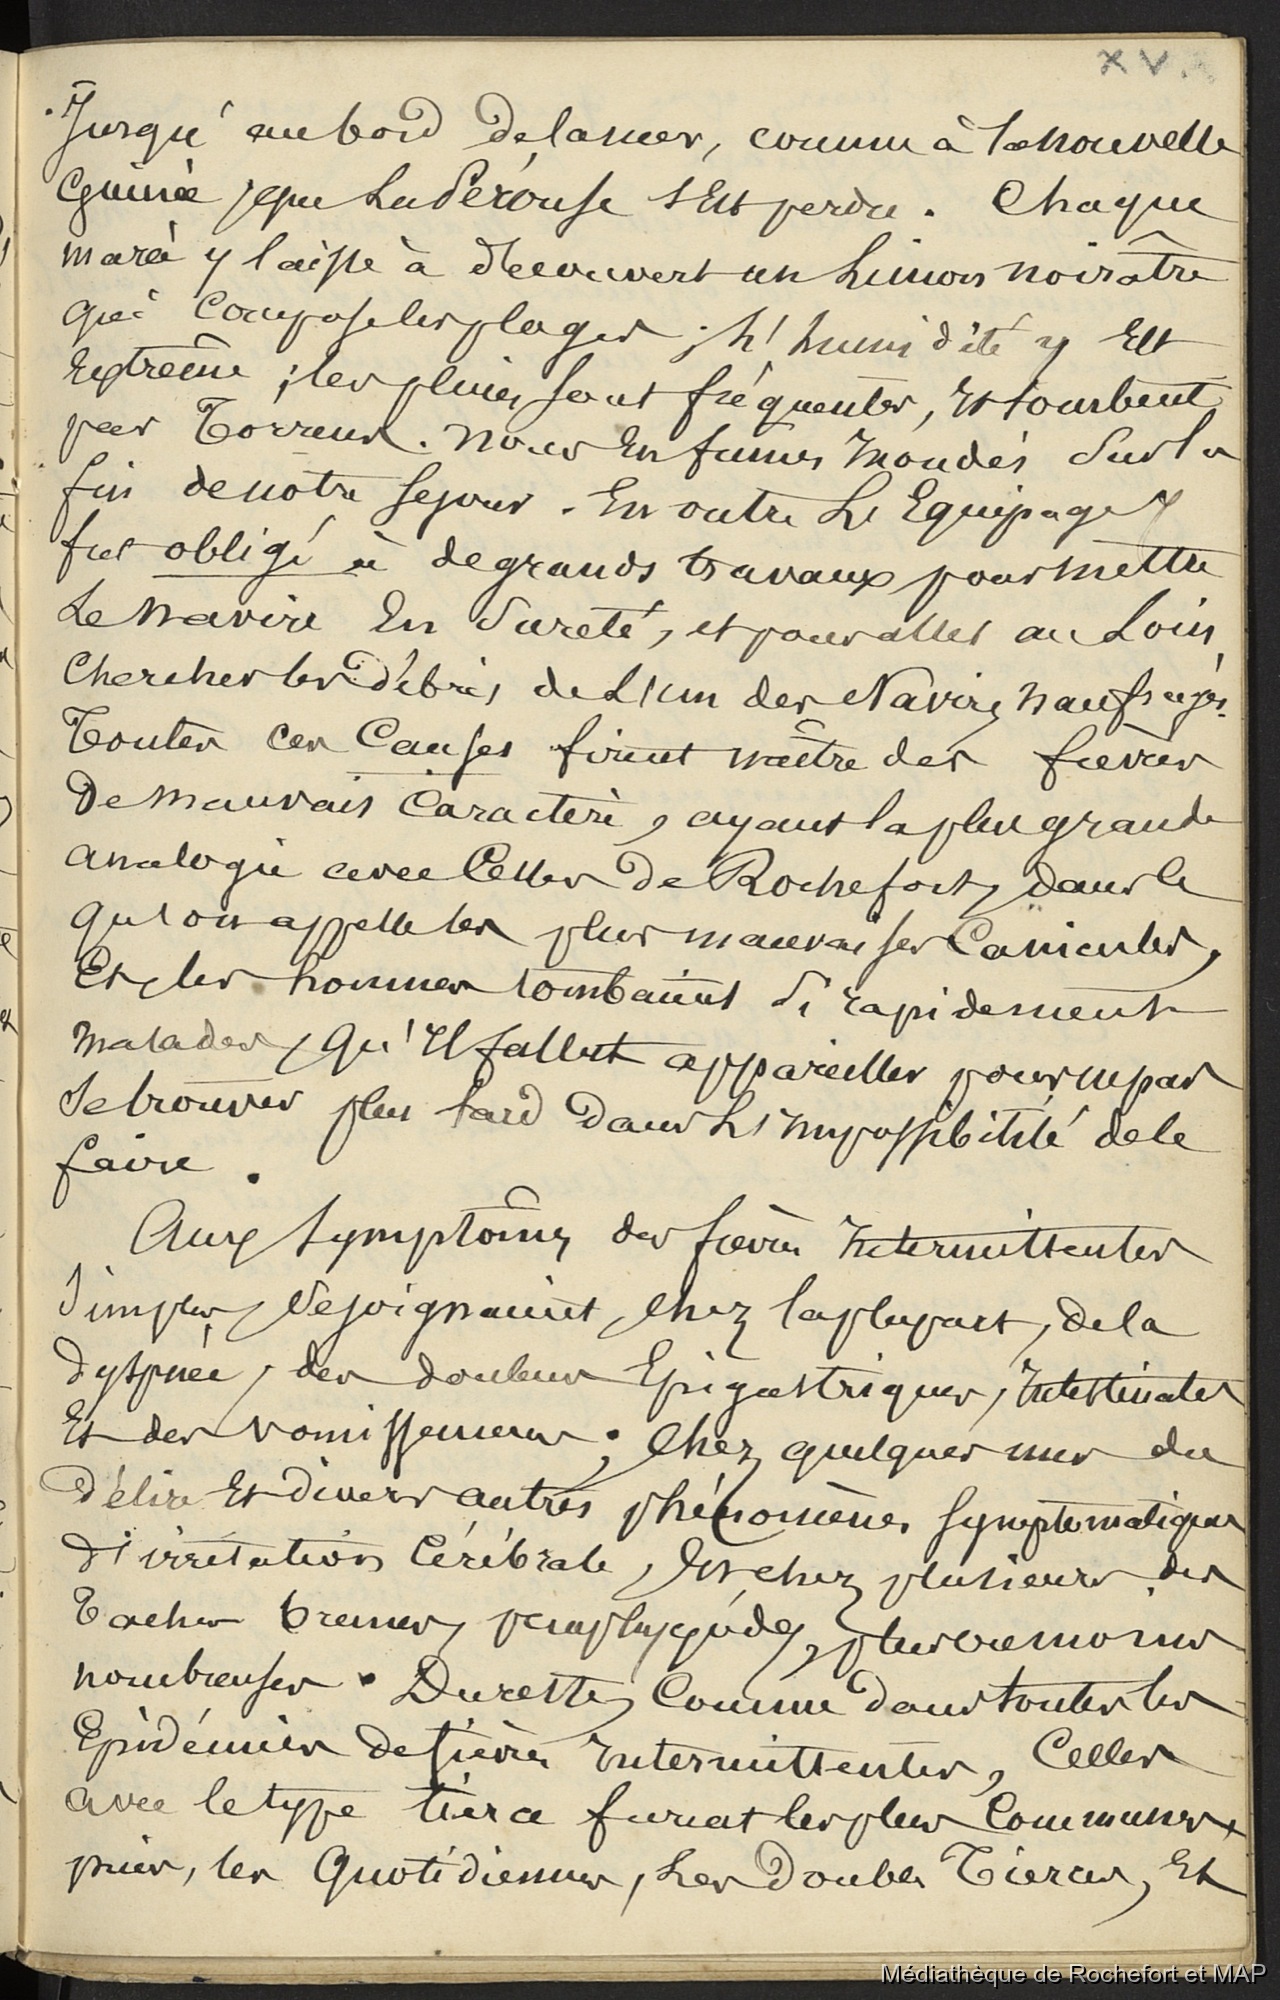 XV.
Jusqu' au bord de la mer, comme à la nouvelle
Guinée que La Pérouse s'Est perdu. Chaque
marée y laisse à découvert un Limon noirâtre
qui Compose les plages ; L'humidité y Est
Extrême ; les pluies sont fréquentes, Et tombent
par Torrens. Nous En fumes Inondés Sur la
fin de notre sejour. En outre L'Equipage
fut obligé à de grands travaux pour mettre
Le Navire En Sureté, et pour aller au Loin
Chercher les Débris de L'un des Navires naufragés.
Toutes ces Causes firent naître des fièvres
De mauvais Caractère, ayant la plus grande
analogie avec Celles De Rochefort, dans ce
qu'on appelle les plus mauvaises Canicules,
Et les hommes tombaient Si rapidement
malades, Qu'Il fallut appareiller pour ne pas
Se trouver plus tard Dans L'impossibilité de le
faire.
Aux Symptômes des fièvres Intermittentes
Simples, Se joignaient, Chez la plupart, de la
dyspnée, des douleurs Epigastriques, Intestinales
Et des vomissemens ; Chez quelques uns du
Délire Et divers autres phénomènes Symptomatiques
d'irritation Cérébrale, Et chez plusieurs des
Taches brunes, plus ou moins
nombreuses. Du reste, Comme Dans toutes les
Epidémies de fièvres Intermittentes, Celles
avec le type tierce furent les plus Communes,
puis, les Quotidiennes, Les Doubles Tierces, Et
Médiathèque de Rochefort et MAP